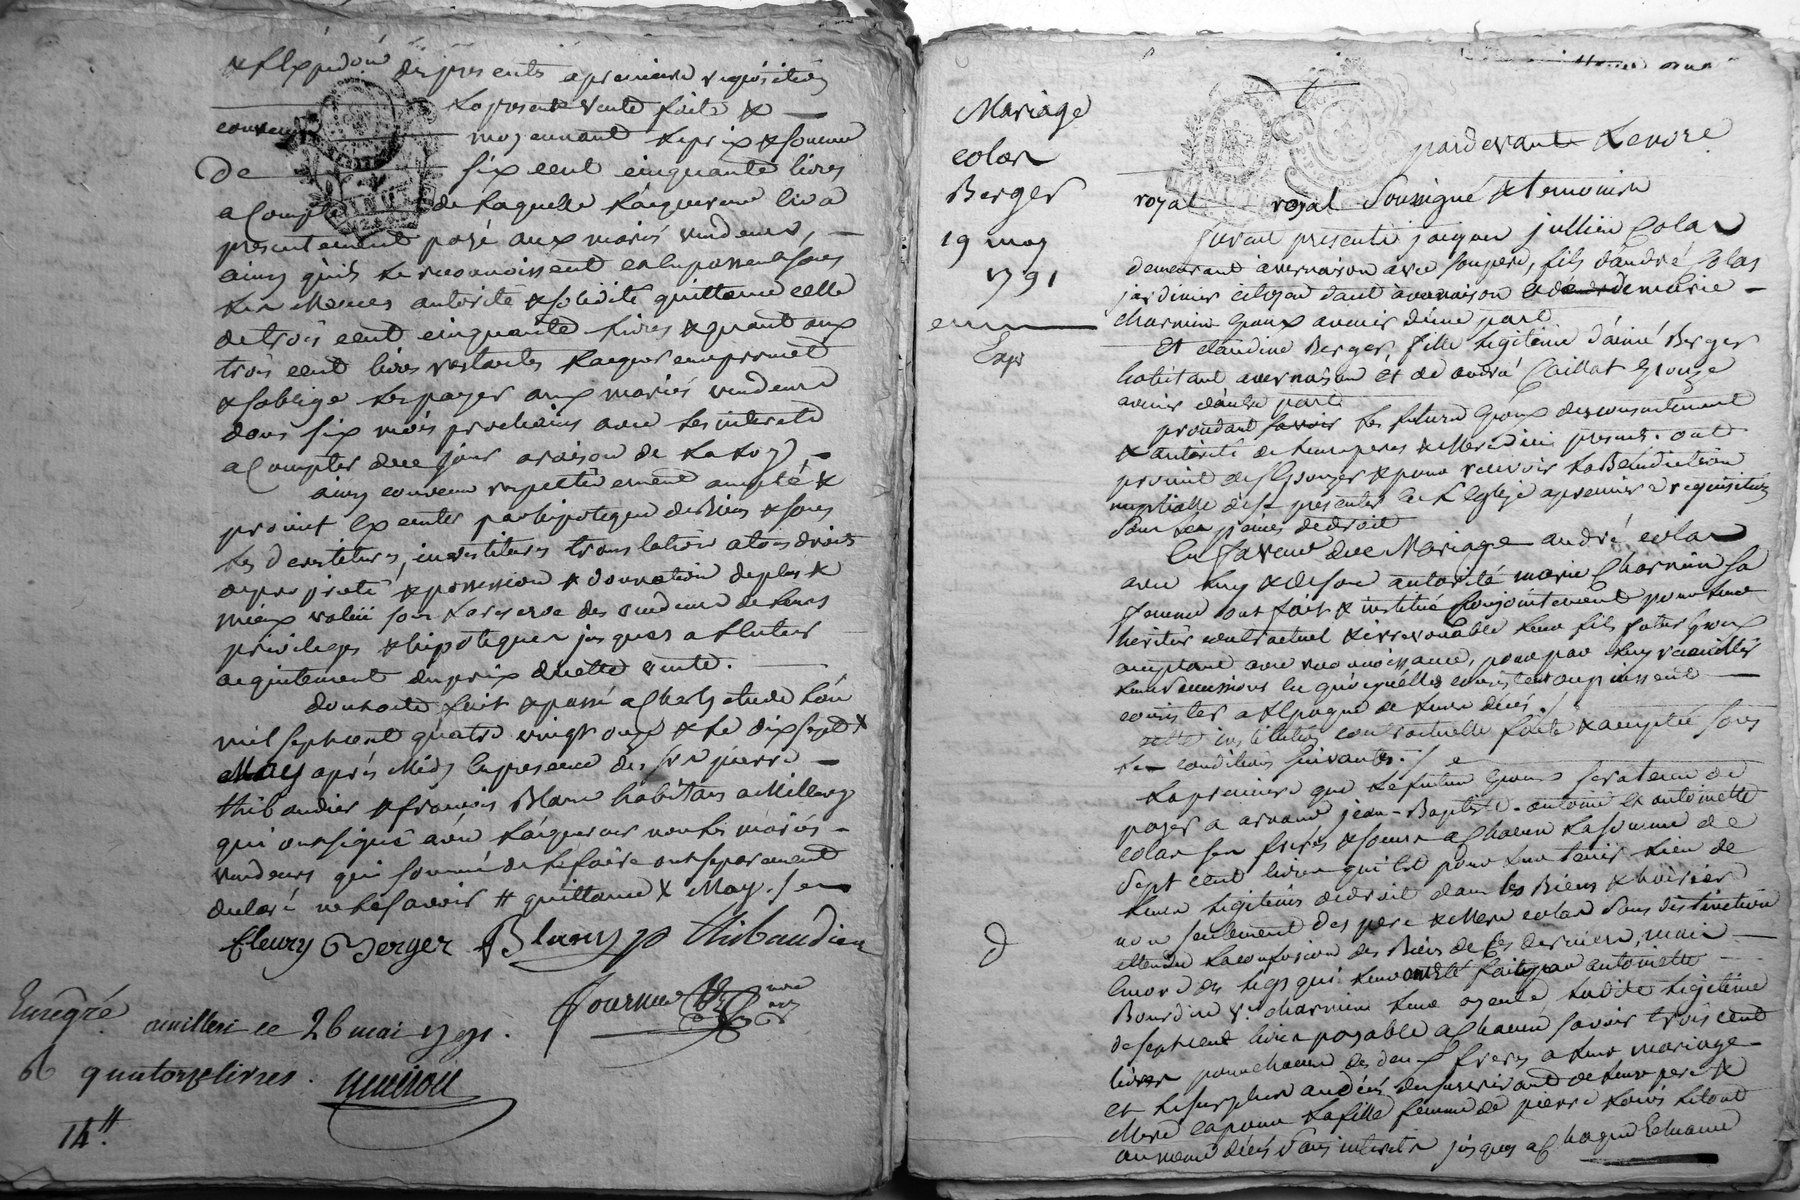 & Expédon des presentes a premiere requisition
la presente vente faite &
convenue moyennant le prix & somme
De six cent cinquante livres
a Compte de laquelle l'acquereur lia
presentement payé aux mariés vendeurs,
ainsy quils le reconnoissent en lupassent sous
les memes autorité & solidité quittance celle
de trois cent cinquante livres & quant aux
trois cent livres restantes l'acquereur promet
& soblige les payer aux mariés vendeurs
dans six mois prochains avec les interets
a Compter de ce jour a raison de la loy,
ainsy convenu respectivement accepté &
promis executer par hipoteque de Biens & sous
les devetitures, investitures translation a tous droits
de propriété & possession & donnation de plus &
mieux value sous la reserve des vendeurs de leurs
privileges & hipoteques jusques a l'entier
acquitement du prix de cette vente.
dont acte fait & passé a Charly etude l'an
mil sept cent quatre vingt onze & le dix sept &
May après Midy En presence des Srs pierre
thibaudier & françois Blanc habitans a Millery
qui ont signé avec l'acquereur non les mariés
vendeurs qui sommé de le faire ont separement
declaré ne le savoir # quittance & May.
fleury Berger Blanc thibaudier
fournier
Enregré a milleri ce 26 mai 1791.
quatorze livres.
14#
Mariage
colas
Berger
19 may
1791
Expé
pardevant le notre
royal royal soussigné & temoins
furent presents jacques jullien Colas
demeurant a vernaison avec son pere, fils d'andré Colas
jardinier citoyen dud. a vernaison & de marie
charmin Epoux avenir d'une part
Et claudine Berger, fille legitime d'aimé Berger
habitant a vernaison & de andrée Caillat Epouze
avenir d'autre part
procedant les futurs Epoux du consentement
& autorité de leurs peres & Meres ici presents. ont
promit de s'Epouzer & pour recevoir la Bénédiction
nuptialle de se presenter en l'Eglize a premiere requisition
sous les peines de droit
En faveur de ce Mariage andré colas
avec luy & de son autorité marie Charmin sa
femme ont fait & institué Conjointement pour leur
heritier contractuel & irrevocable leur fils futur Epoux
acceptant avec reconnoissance, pour par luy recueillir
leurs successions en quoy qu'elles consistent ou puissent
consister a l'Epoque de leur décès.
cette institution contractuelle faite & acceptée sous
les conditions suivantes.
la premiere que le futur Epoux sera tenu de
payer a armand jean-Baptiste. antoine & antoinette
colas ses freres & soeur a Chacun la somme de
sept cent livres qui est pour leur tenir lieu de
leurs legitimes de droit dans les Biens & hoiries
non seulement des pere & Mere colas sans distinction
attendu la confusion des Biens de ces derniers, mais
encore des legs qui leur ont été faits par antoinette
Bourdin Ve. charmin leur ayeule ladite legitime
de sept cent livres payable a Chacun savoir trois cent
livres pour chacun des deux freres a leur mariage
et le surplus au décès du survivant de leurs pere &
Mere Et pour la fille femme de pierre louis le tout
au meme décès sans interets jusques a Chaque Echeance